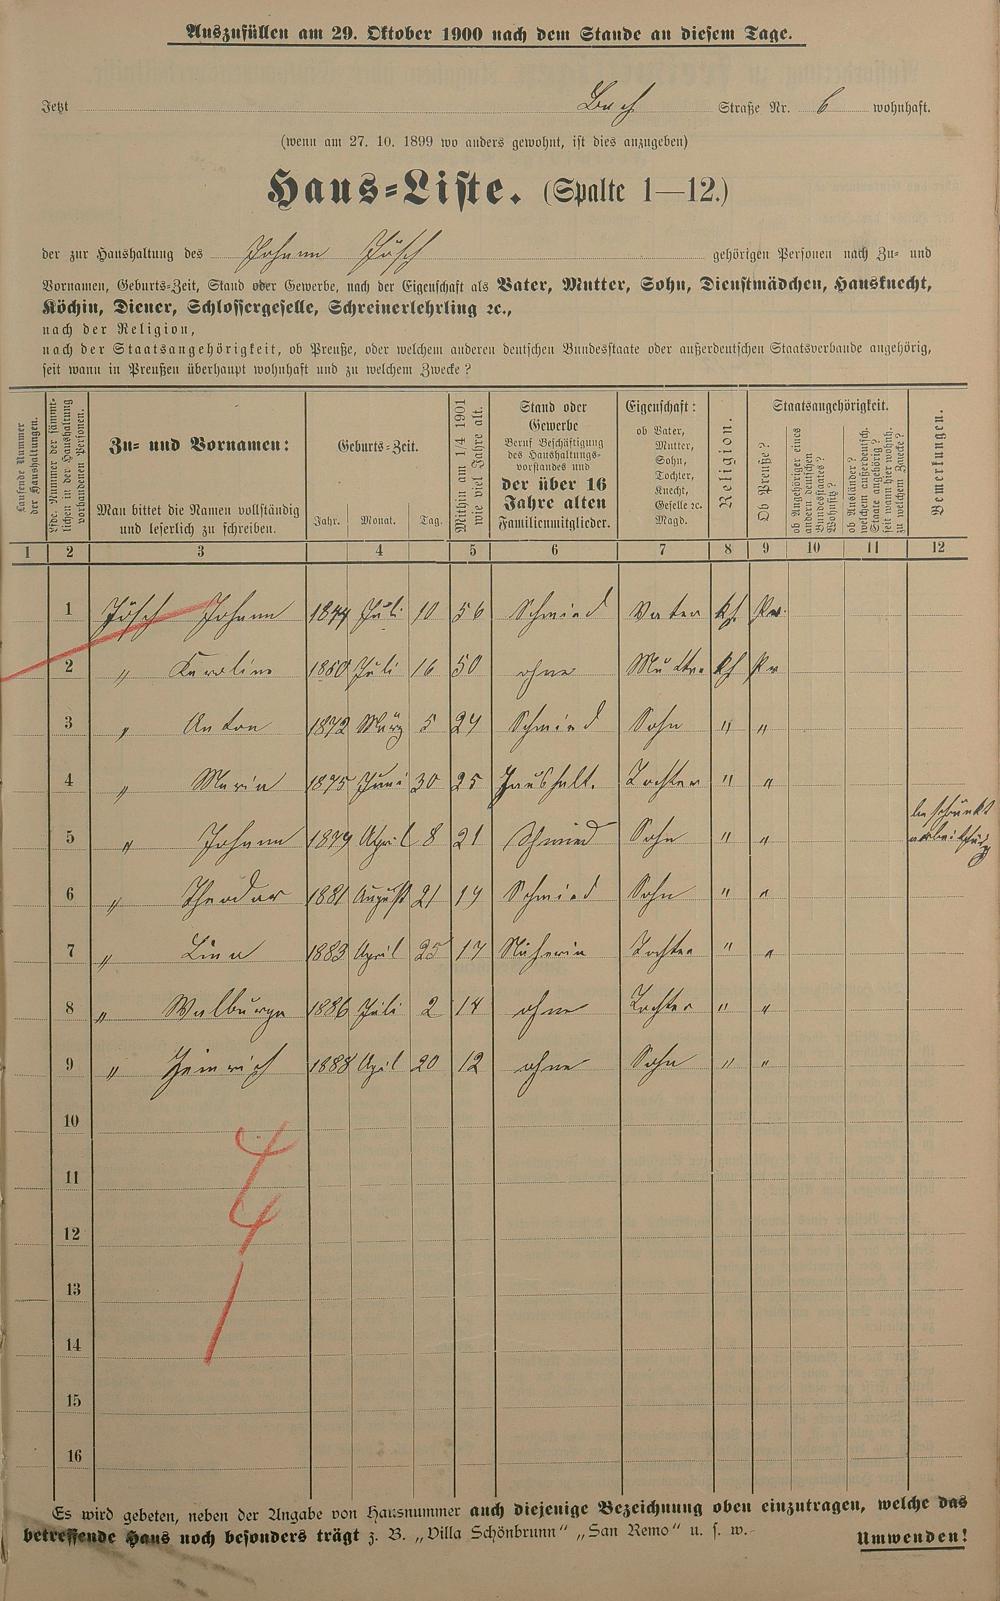 Auszufüllen am 29. Oktober 1900 nach dem Stande an diesem Tage.
Jetzt Bach Straße Nr. 6 wohnhaft.
(wenn am 27. 10. 1899 wo anders gewohnt, ist dies anzugeben)
Haus-Liste. (Spalte 1—12.)
der zur Haushaltung des Johann Jösch gehörigen Personen nach Zu- und
Vornamen, Geburts-Zeit, Stand oder Gewerbe, nach der Eigenschaft als Vater, Mutter, Sohn, Dienstmädchen, Hausknecht,
Köchin, Diener, Schlossergeselle, Schreinerlehrling ꝛc.,
nach der Religion,
nach der Staatsangehörigkeit, ob Preuße, oder welchem anderen deutschen Bundesstaate oder außerdeutschen Staatsverbande angehörig,
seit wann in Preußen überhaupt wohnhaft und zu welchem Zwecke?
Laufende Nummer der Haushaltungen.
lfde. Nummer der sämmtlichen in der Haushaltung vorhandenen Personen.
Zu- und Vornamen:
Man bittet die Namen vollständig
und leserlich zu schreiben.
Geburts-Zeit.
Jahr. Monat. Tag.
Mithin am 1/4 1901 wie viel Jahre alt.
Stand oder
Gewerbe
Beruf Beschäftigung
des Haushaltungs-
vorstandes und
der über 16
Jahre alten
Familienmitglieder.
Eigenschaft:
ob Vater,
Mutter,
Sohn,
Tochter,
Knecht,
Geselle ꝛc.
Magd.
Religion.
Staatsangehörigkeit.
Ob Preuße?
ob Angehöriger eines andern deutschen Bundesstaates? Wohnsitz?
ob Ausländer? welchem außerdeutsch. Staate angehörig? seit wann hier wohnh. zu welchem Zwecke?
Bemerkungen.
1 2 3 4 5 6 7 8 9 10 11 12
1 Jösch Johann 1844 Juli 10 56 Schmied Vater kh. Pr.
2 " Karoline 1850 Juli 16 50 ohne Mutter kh Pr
3 " Anton 1872 März 5 24 Schmied Sohn " "
4 " Maria 1875 Juni 30 25 Haushalt. Tochter " "
5 " Johann 1879 April 8 21 Schmied Sohn " " beschränkt arbeitsfähig
6 " Theodor 1881 August 21 19 Schmied Sohn " "
7 " Lina 1883 April 25 17 Näherin Tochter " "
8 " Walburga 1886 Juli 2 14 ohne Tochter " "
9 " Heinrich 1888 April 20 12 ohne Sohn " "
10
11
12
13
14
15
16
4
4
1
Es wird gebeten, neben der Angabe von Hausnummer auch diejenige Bezeichnung oben einzutragen, welche das
betreffende Haus noch besonders trägt z. B. „Villa Schönbrunn" „San Remo" u. s. w.
Umwenden!